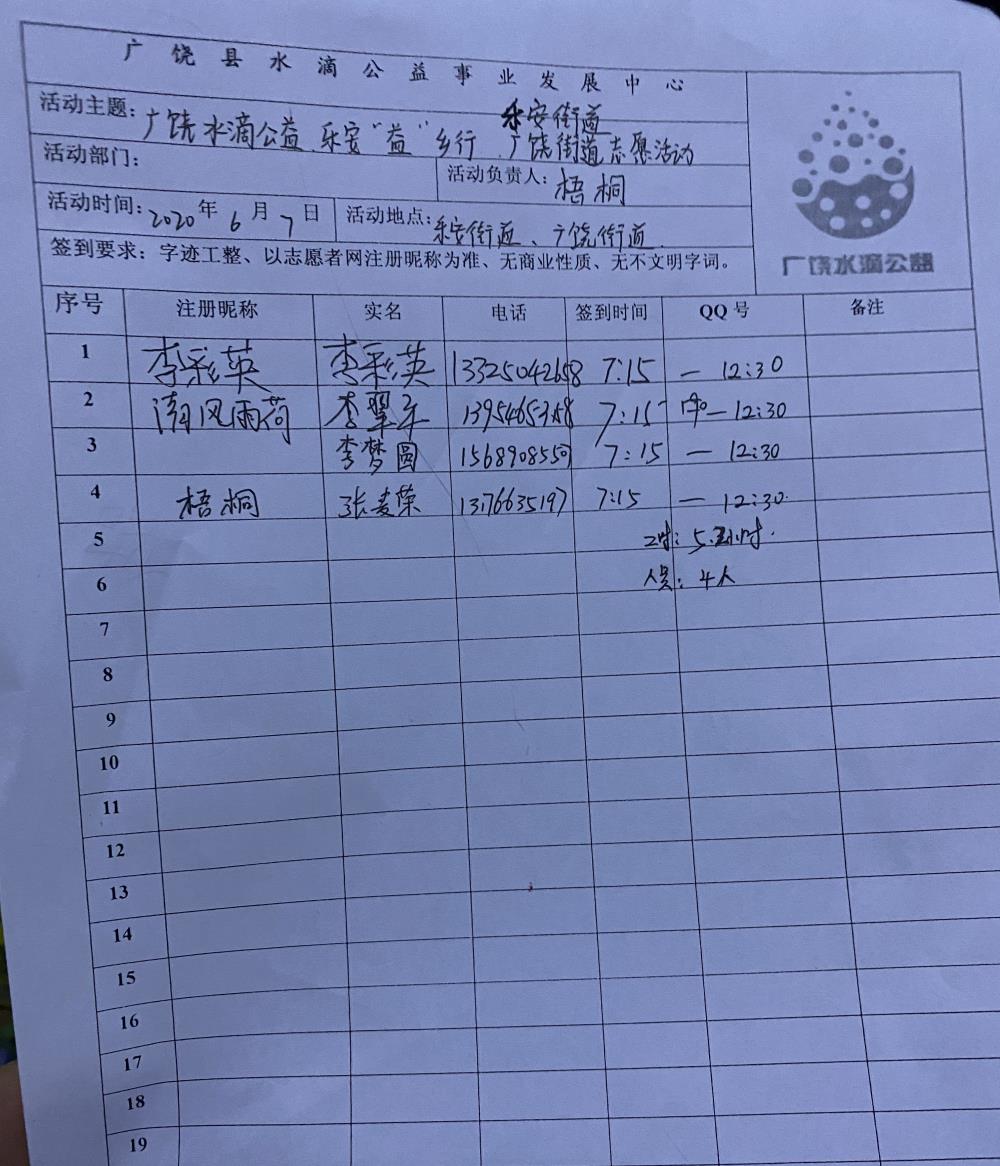 广饶县水滴公益事业发展中心
乐安街道
活动主题：广饶水滴公益 乐安“益”乡行 广饶街道志愿活动
活动部门：
活动负责人：梧桐
活动时间：2020年6月7日 活动地点：乐安街道、广饶街道
签到要求：字迹工整、以志愿者网注册昵称为准、无商业性质、无不文明字词。
广饶水滴公益
序号 注册昵称 实名 电话 签到时间 QQ号 备注
1 李彩英 李彩英 13325042658 7:15 — 12:30
2 清风雨荷 李翠 7:15 — 12:30
3 李梦圆 1568908550 7:15 — 12:30
4 梧桐 张麦荣 13176635197 7:15 — 12:30
5 工时：5.小时
6 人员：4人
7
8
9
10
11
12
13
14
15
16
17
18
19